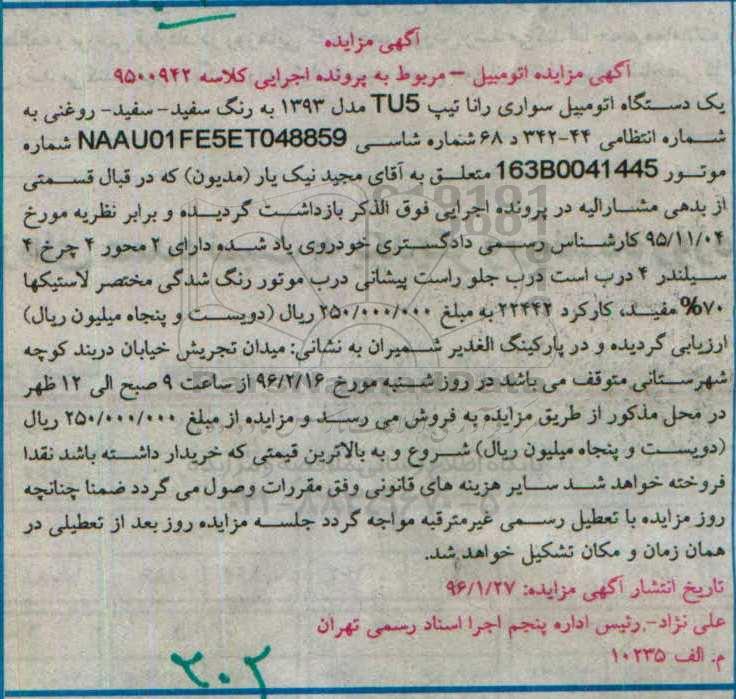 آگهی مزایده
آگهی مزایده اتومبیل – مربوط به پرونده اجرایی کلاسه ۹۵۰۰۹۴۲
یک دستگاه اتومبیل سواری رانا تیپ TU5 مدل ۱۳۹۳ به رنگ سفید- سفید- روغنی به
شماره انتظامی ۴۴-۳۴۲ د ۶۸ شماره شاسی NAAU01FE5ET048859 شماره
موتور 163B0041445 متعلق به آقای مجید نیک یار (مدیون) که در قبال قسمتی
از بدهی مشارالیه در پرونده اجرایی فوق الذکر بازداشت گردیده و برابر نظریه مورخ
۹۵/۱۱/۰۴ کارشناس رسمی دادگستری خودروی یاد شده دارای ۲ محور ۴ چرخ ۴
سیلندر ۴ درب است درب جلو راست پیشانی درب موتور رنگ شدگی مختصر لاستیکها
۷۰% مفید، کارکرد ۲۲۴۴۲ به مبلغ ۲۵۰/۰۰۰/۰۰۰ ریال (دویست و پنجاه میلیون ریال)
ارزیابی گردیده و در پارکینگ الغدیر شمیران به نشانی: میدان تجریش خیابان دربند کوچه
شهرستانی متوقف می باشد در روز شنبه مورخ ۹۶/۲/۱۶ از ساعت ۹ صبح الی ۱۲ ظهر
در محل مذکور از طریق مزایده به فروش می رسد و مزایده از مبلغ ۲۵۰/۰۰۰/۰۰۰ ریال
(دویست و پنجاه میلیون ریال) شروع و به بالاترین قیمتی که خریدار داشته باشد نقدا
فروخته خواهد شد سایر هزینه های قانونی وفق مقررات وصول می گردد ضمنا چنانچه
روز مزایده با تعطیل رسمی غیرمترقبه مواجه گردد جلسه مزایده روز بعد از تعطیلی در
همان زمان و مکان تشکیل خواهد شد.
تاریخ انتشار آگهی مزایده: ۹۶/۱/۲۷
علی نژاد- رئیس اداره پنجم اجرا اسناد رسمی تهران
م. الف ۱۰۲۳۵
۲۰۲